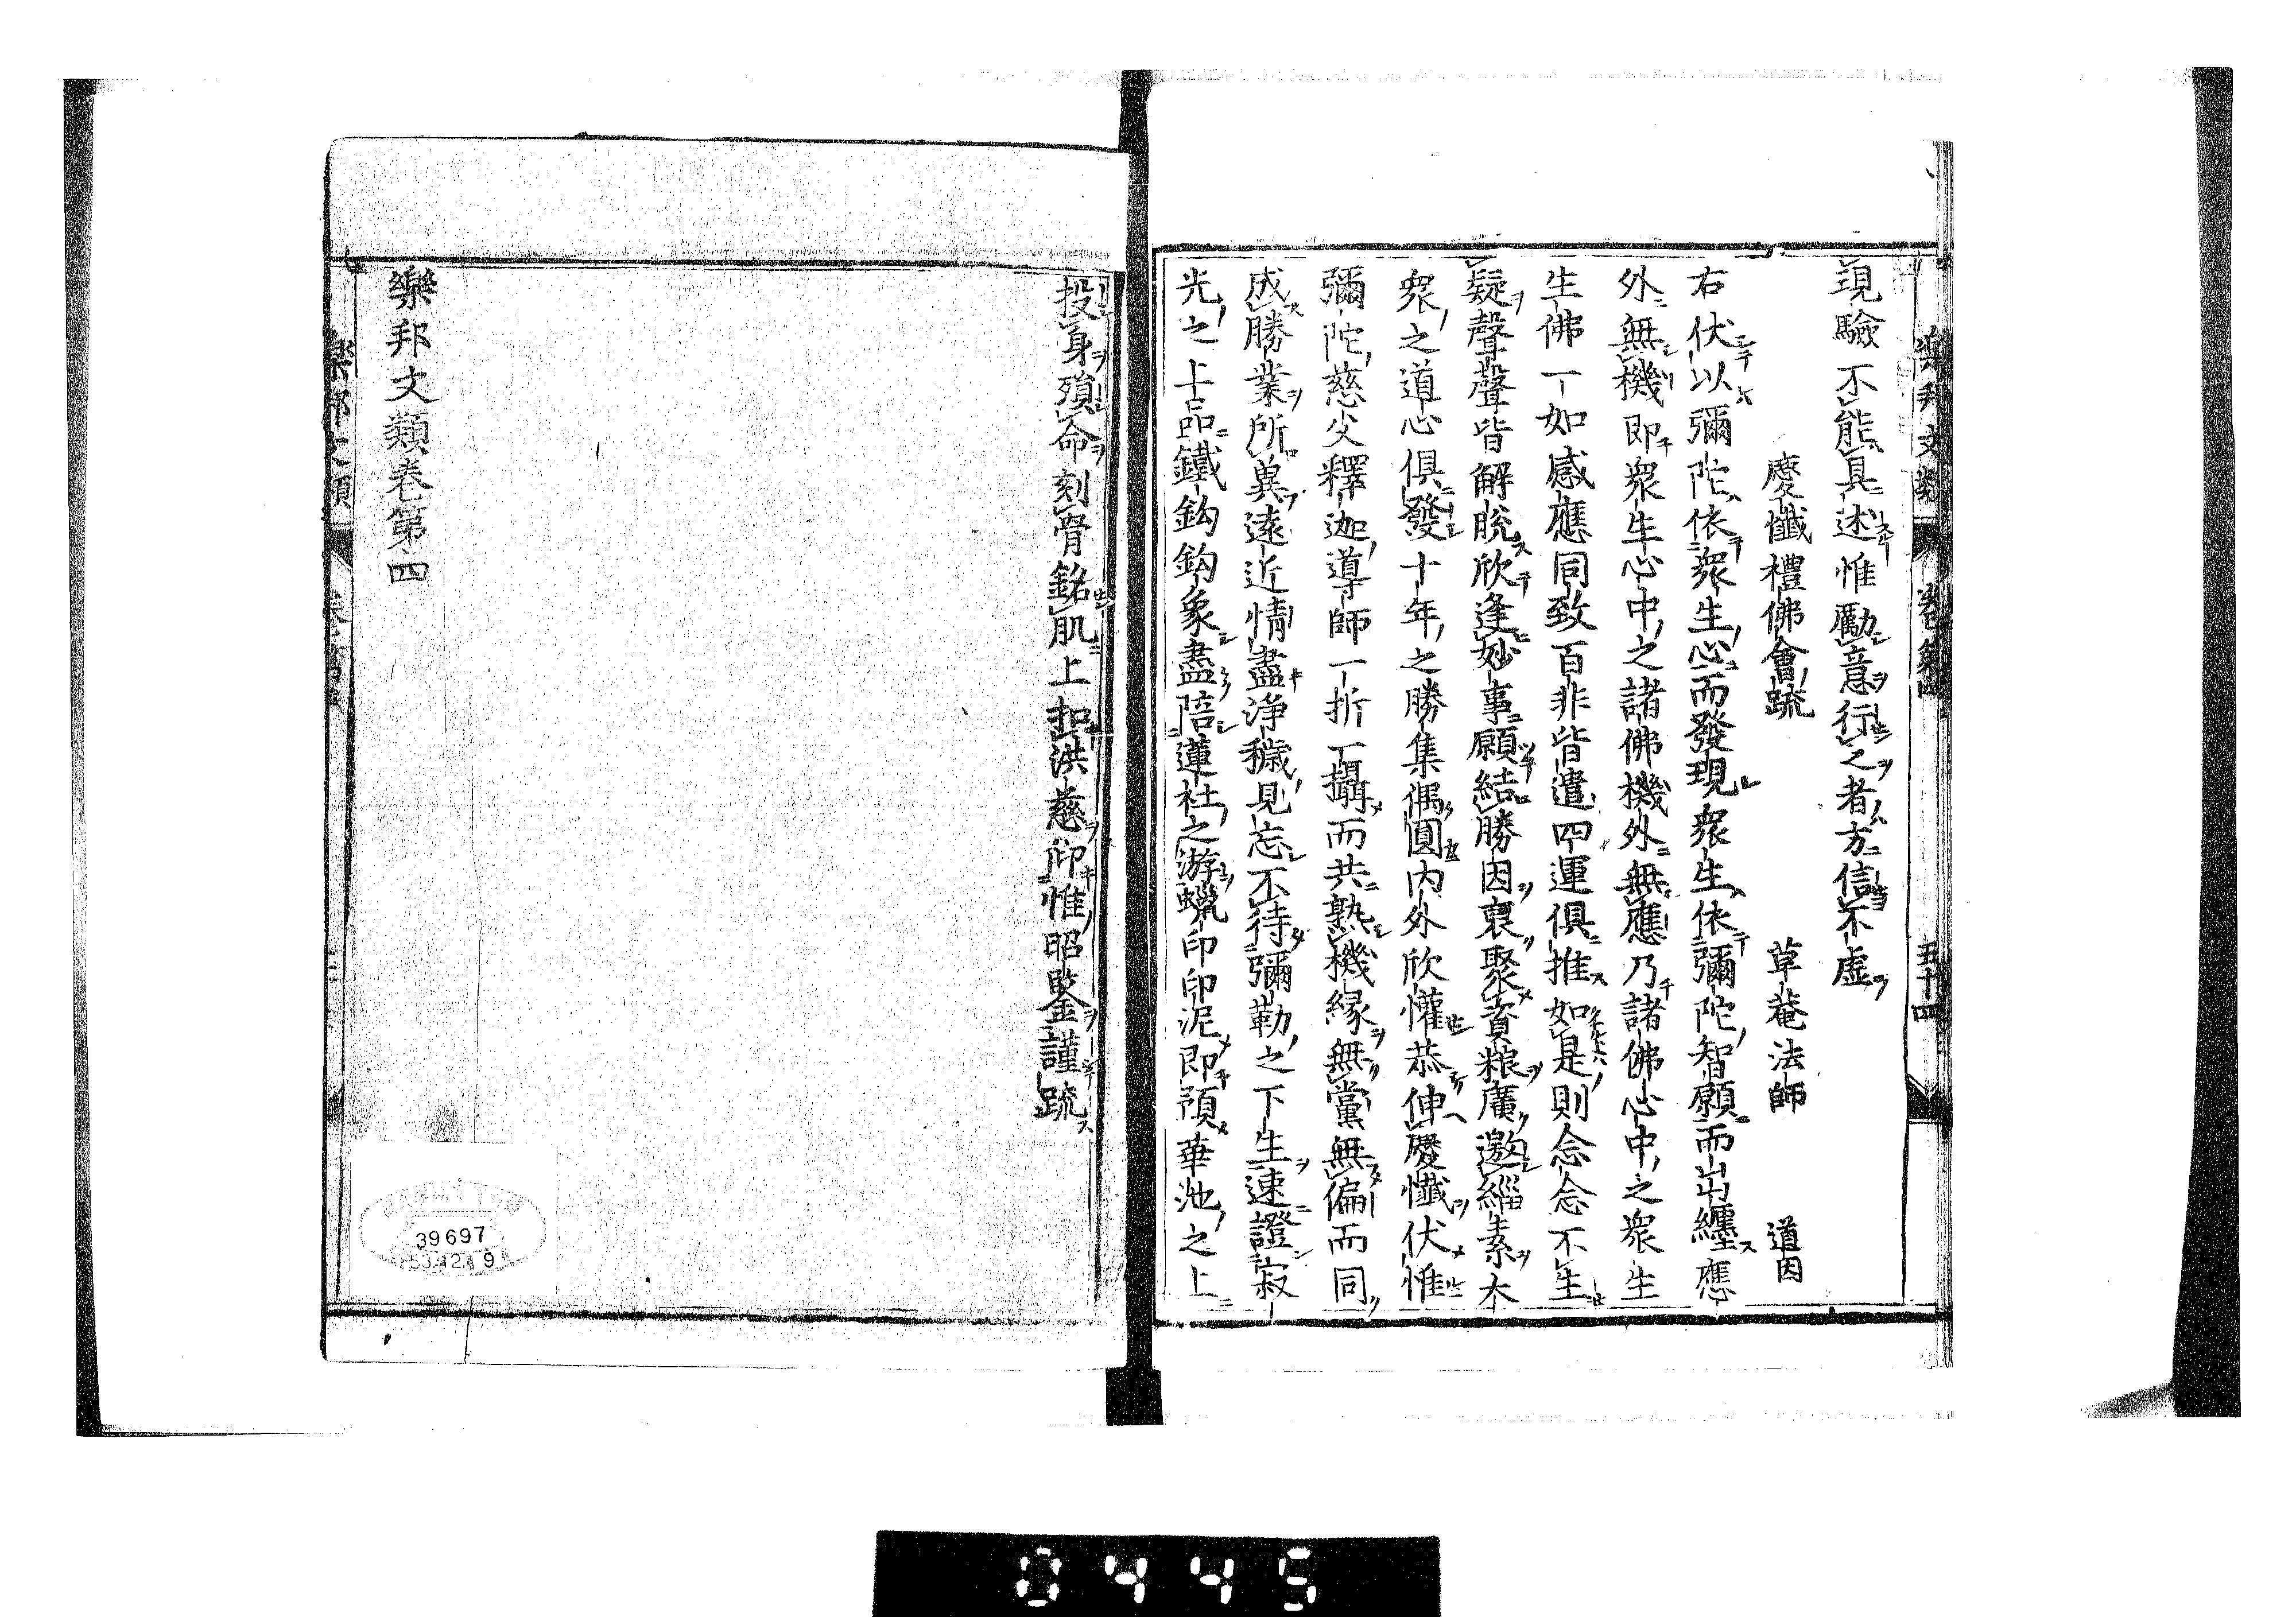 樂邦文類 卷第四 五十四
現驗不能具述惟勵意行之者方信不虛
慶懺禮佛會䟽 草菴法師 道因
右伏以彌陀依衆生心而發現衆生依彌陀智願而出纏應
外無機即衆生心中之諸佛機外無應乃諸佛心中之衆生
生佛一如感應同致百非皆遣四運俱推如是則念念不生
疑聲聲皆解脫欣逢妙事願結勝因裒聚資粮廣邀緇素大
衆之道心俱發十年之勝集偶圓内外欣懽恭伸慶懺伏惟
彌陀慈父釋迦導師一折一攝而共熟機緣無黨無偏而同
成勝業所冀遠近情盡淨穢見忘不待彌勒之下生速證寂
光之上品鐵鈎鈎象盡陪蓮社之游蠟印印泥即預華池之上
投身殞命刻骨銘肌上扣洪慈仰惟昭鑒謹䟽
樂邦文類卷第四
樂邦文類
39697
9
0445